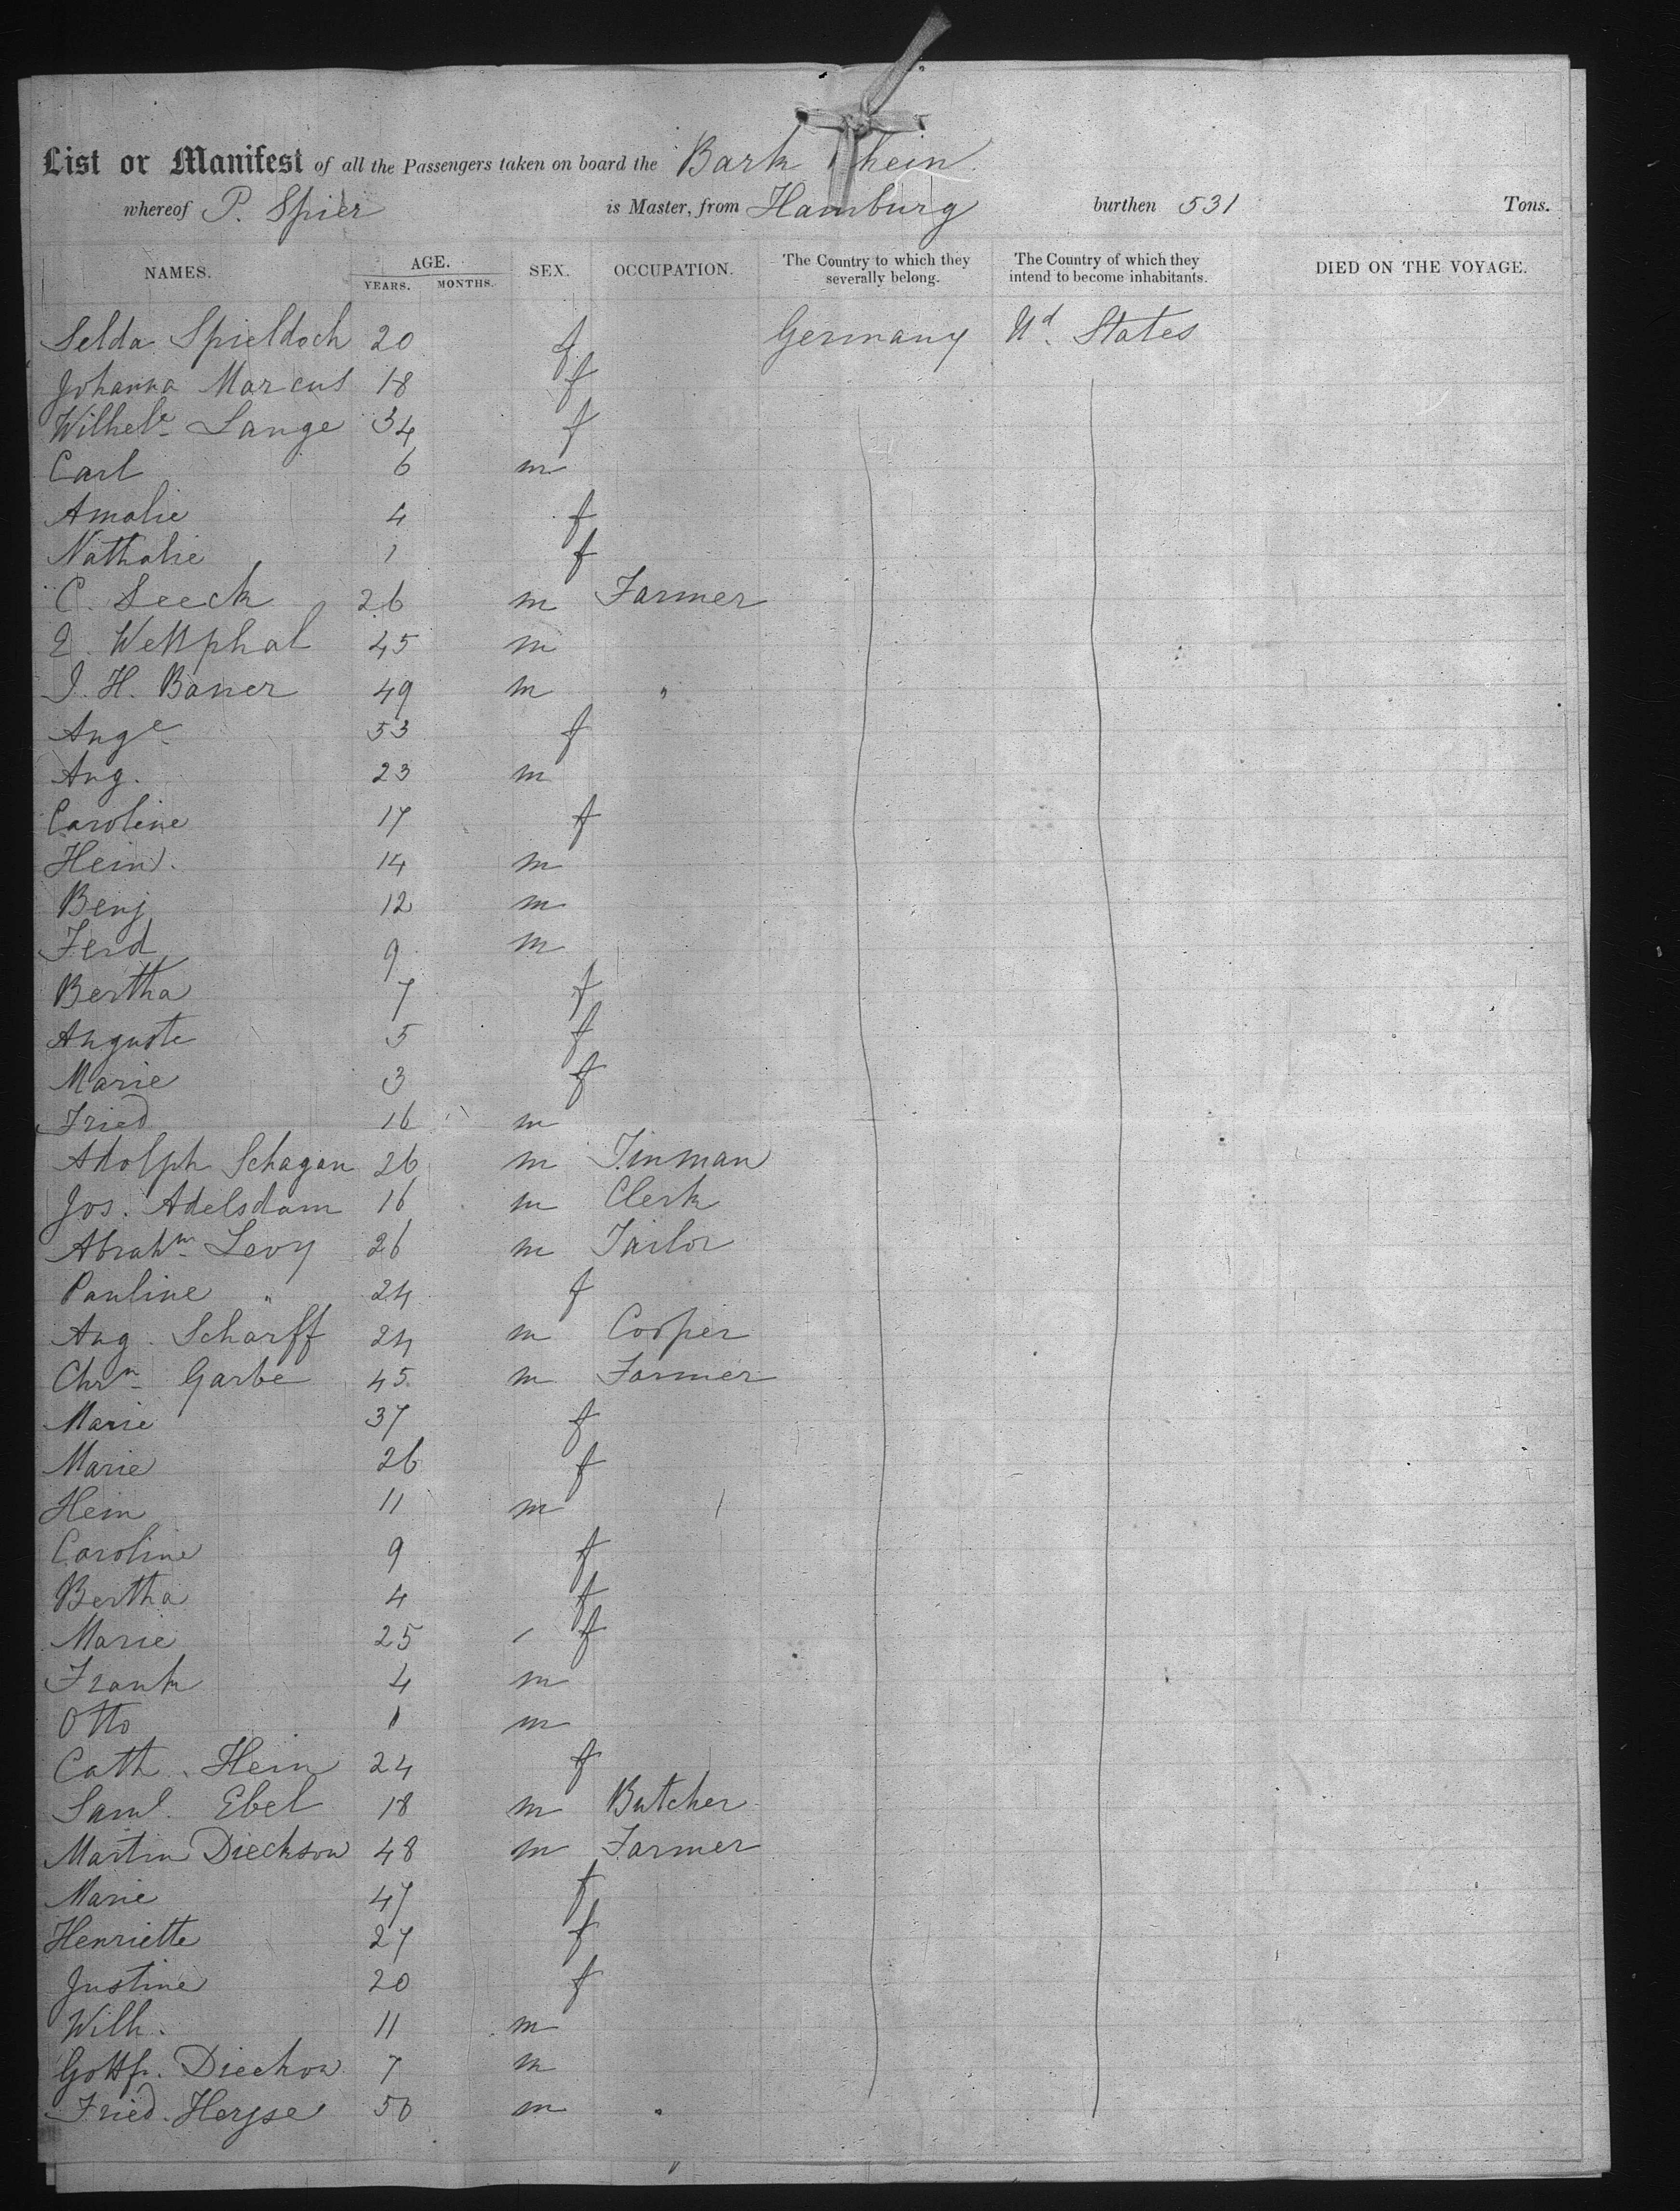 List or Manifest of all the Passengers taken on board the Bark Rhein
whereof P. Spier is Master, from Hamburg burthen 531 Tons.
NAMES. AGE. YEARS. MONTHS. SEX. OCCUPATION. The Country to which they severally belong. The Country of which they intend to become inhabitants. DIED ON THE VOYAGE.
Selda Spieldoch 20 f Germany Ud. States
Johanna Marcus 18 f
Wilhele Lange 34 f
Carl 6 m
Amalie 4 f
Nathalie 1 f
C. Seeck 26 m Farmer
Westphal 45 m
J. H. Bauer 49 m "
Auge 53 f
Aug. 23 m
Caroline 17 f
Heinr. 14 m
Benj 12 m
Ferd 9 m
Bertha 7 f
Auguste 5 f
Marie 3 f
Fried 16 m
Adolph Schagan 26 m Tinman
Jos. Adelsdam 16 m Clerk
Abrahm Levy 26 m Tailor
Pauline " 24 f
Aug. Scharff 24 m Cooper
Chrn Garbe 45 m Farmer
Marie 37 f
Marie 26 f
Hein 11 m
Caroline 9 f
Bertha 4 f
Marie 25 f
Frank 4 m
Otto 1 m
Cath. Hein 24 f
Saml. Ebel 18 m Butcher
Martin Dieckow 48 m Farmer
Marie 47 f
Henriette 27 f
Justine 20 f
Wilh. 11 m
Gottfr. Dieckow 7 m
Fried. Heyse 50 m "